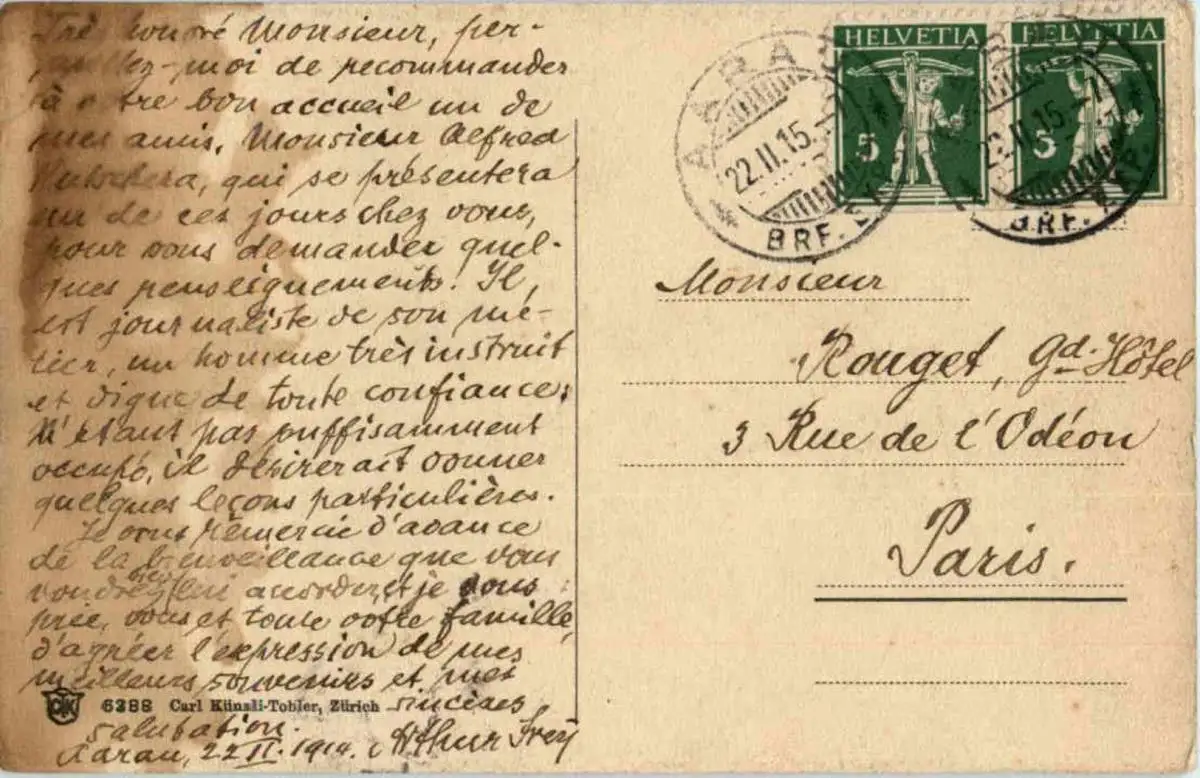 Très honoré Monsieur, per-
mettez-moi de recommander
à votre bon accueil un de
mes amis, Monsieur Alfred
qui se présentera
un de ces jours chez vous,
pour vous demander quel-
ques renseignements. Il,
est journaliste de son mé-
tier, un homme très instruit
et digne de toute confiance.
N'étant pas suffisamment
occupé, il désirerait donner
quelques leçons particulières.
Je vous remercie d'avance
de la bienveillance que vous
voudrez bien lui accorder, et je vous
prie, vous et toute votre famille,
d'agréer l'expression de mes
meilleurs souvenirs et mes
sincères
salutation.
Aarau, 22 II. 1914. Arthur Frey
CTK 6388 Carl Künzli-Tobler, Zürich
HELVETIA
5
HELVETIA
5
AARAU
22.II.15.
BRF. EXP.
AARAU
22.II.15.
BRF. EXP.
Monsieur
Rouget, Gd. Hôtel
3 Rue de l'Odéon
Paris.